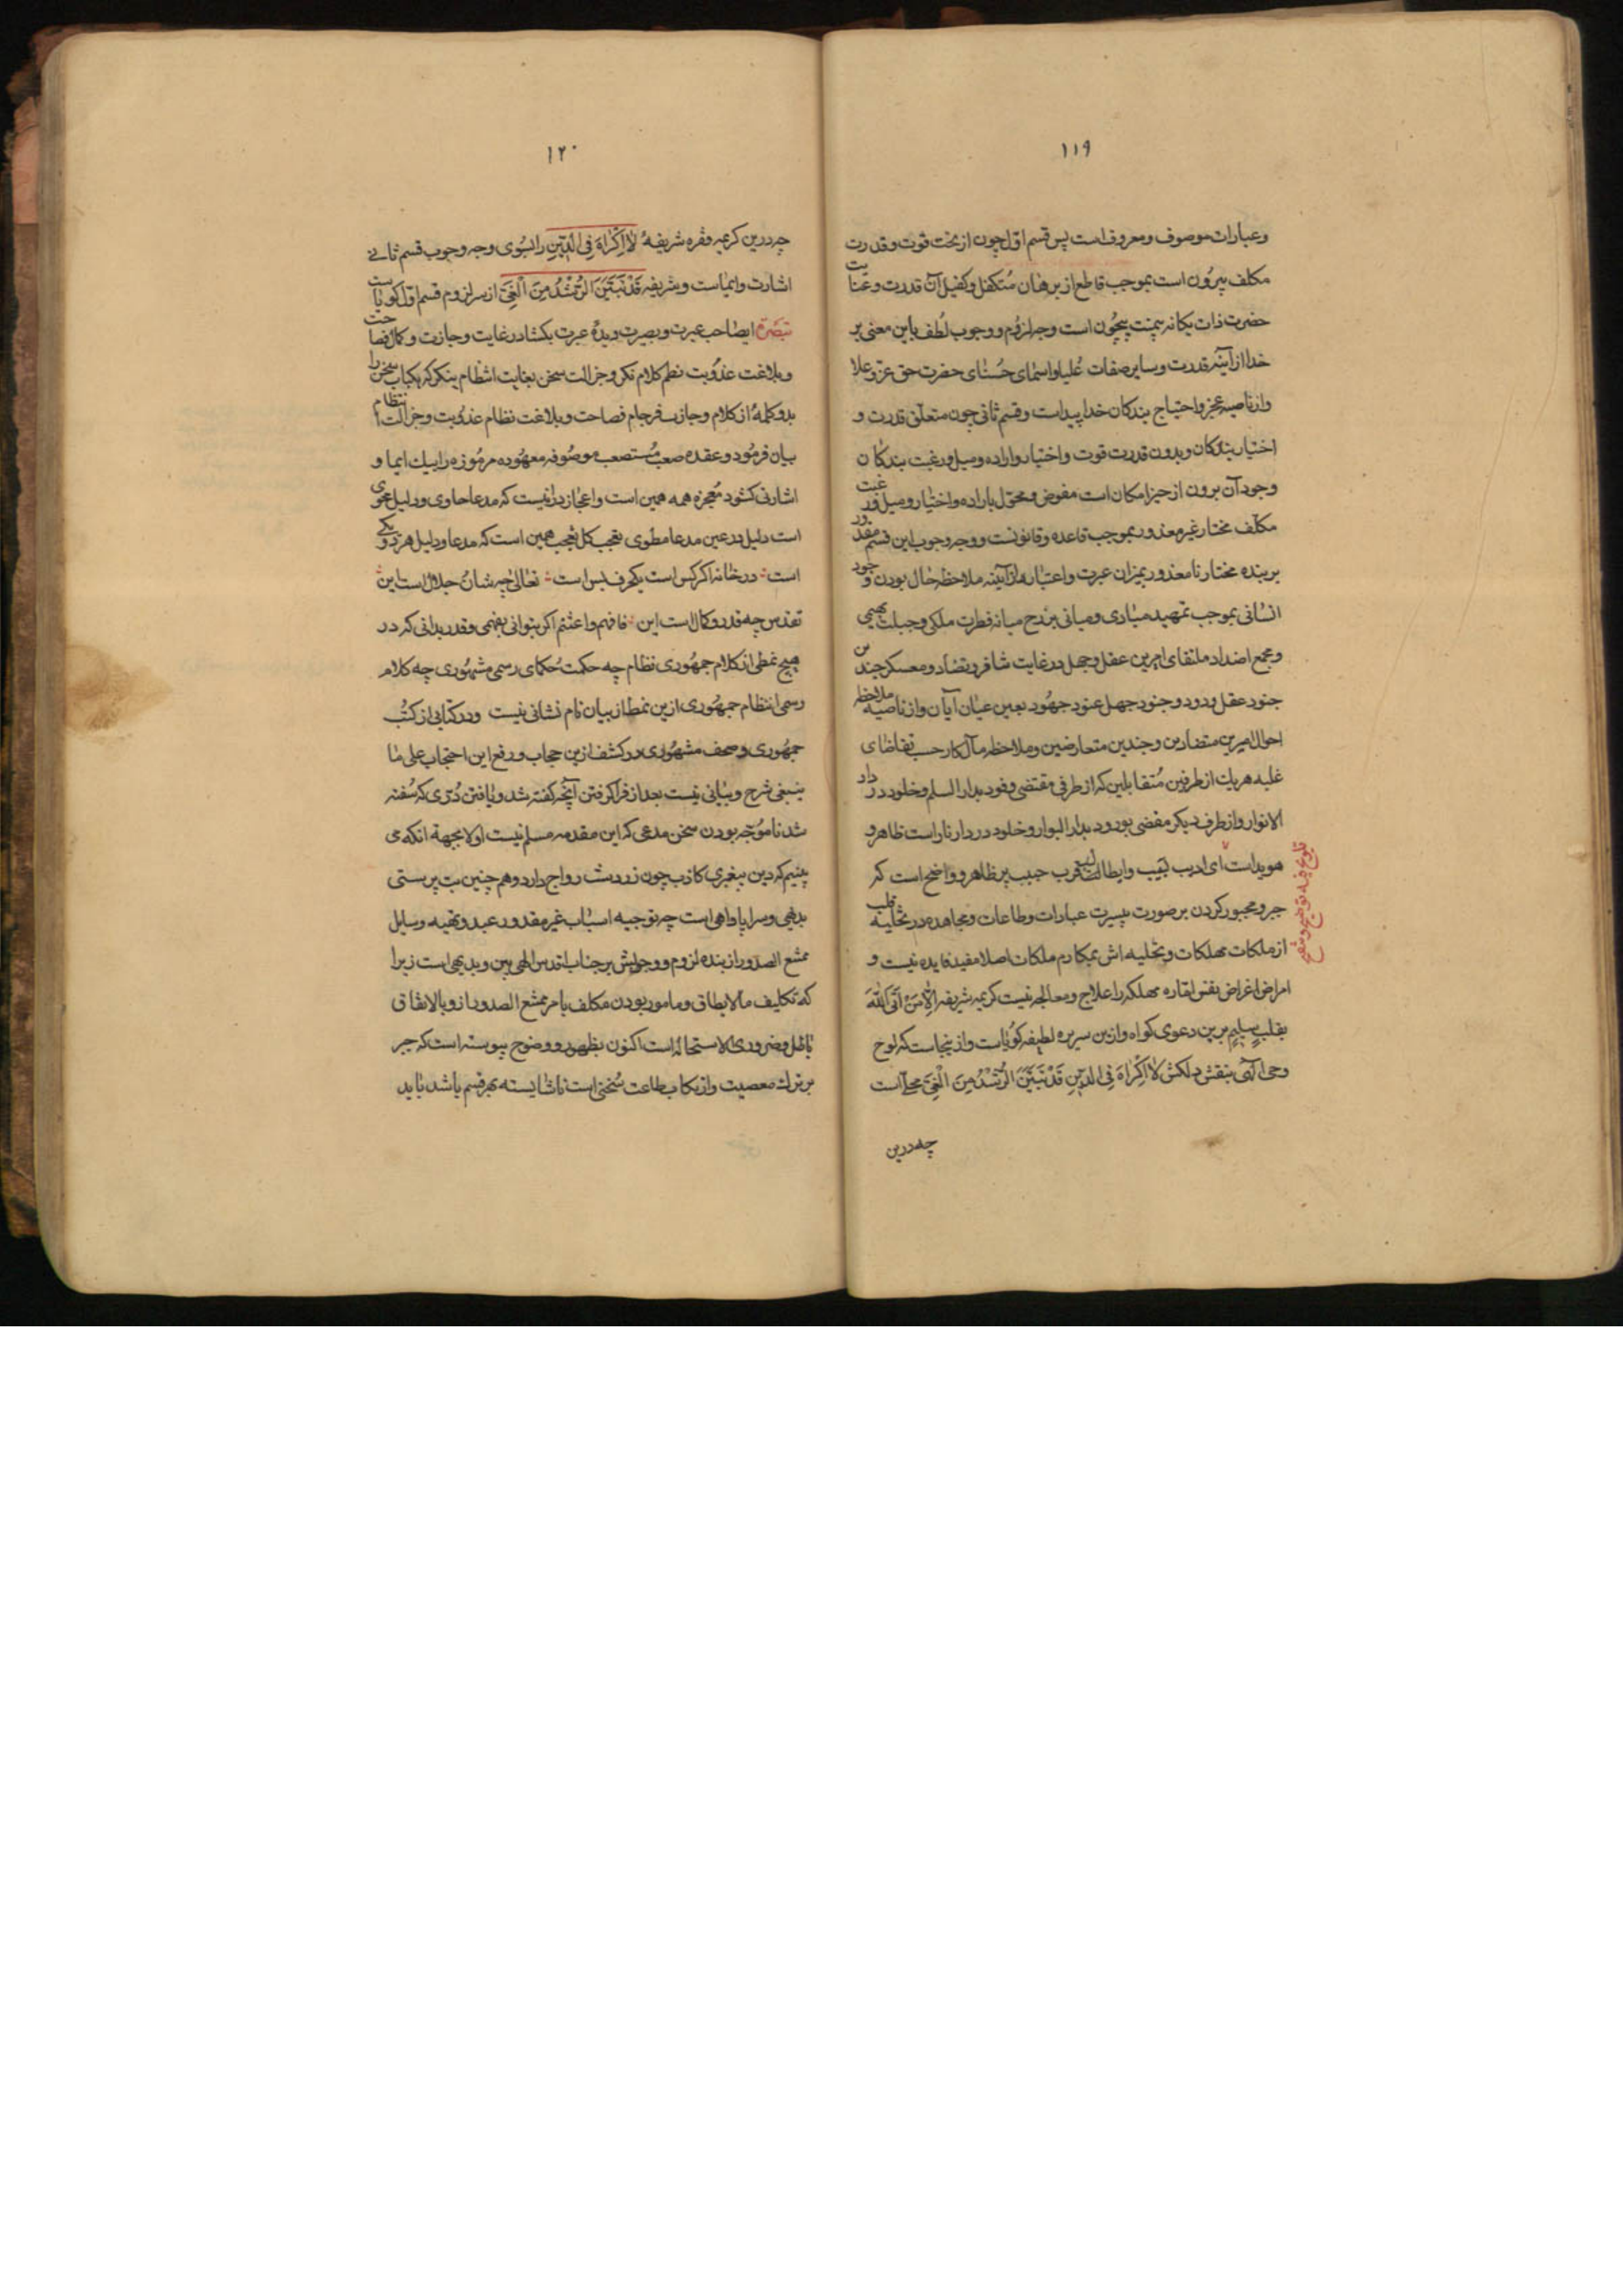 ۱۱۹
و عبارات موصوف و معروف است پس قسم اول چون از تحت قوت و قدرت
مکلف بیرون است بموجب قاطع از برهان متکفل و کفیل آن قدرت و عنایت
حضرت ذات یکانه بیچون است وجه لزوم و وجوب لطف باین معنی بر
خدا از آینه قدرت و سایر صفات علیا و اسمای حسنای حضرت حق عز و علا
و از ناصیه عجز و احتیاج بندکان خدا پیداست و قسم ثانی چون متعلق قدرت و
اختیار بندکان و بدون قدرت قوت و اختیار و اراده و میل و رغبت بندکان
وجود آن برون از حیز امکان است مفوض و محول باراده و اختیار و میل و رغبت
مکلف مختار غیر معذور بموجب قاعده و قانونست و وجه وجوب این قسم مقدور
بر بنده مختار نامعذور بمیزان عبرت و اعتبار هم از آینه ملاحظه حال بودن وجود
انسانی بموجب تمهید مبادی و مبانی برزخ میانه فطرت ملکی و جبلت بهیمی
و مجمع اضداد ملتقای امرین عقل و جهل در غایت تنافر و تضاد و معسکر جندین
جنود عقل ودود و جنود جهل عنود جهود بعین عیان آیان و از ناصیه ملاحظه
احوال امیرین متضادین و جندین متعارضین و ملاحظه مآل کار حسب تقاضای
غلبه هر یک از طرفین متقابلین که از طرفی مقتضی وفود بدار السلم و خلود در دار
الانوار و از طرف دیکر مفضی بورود بدار البوار و خلود در دار نار است ظاهر و
هویداست ای ادیب لبیب و ای طالب قرب حبیب پر ظاهر و واضح است که
جبر و مجبور کردن بر صورت بیسیرت عبارات و طاعات و مجاهده در تخلیه قلب
از ملکات مهلکات و تحلیه اش بمکارم ملکات اصلا مفید فایده نیست و
امراض اغراض نفس اماره مهلکه را علاج و معالجه نیست کریمه شریفه اِلّا مَنْ اَتَی اللّٰهَ
بقلبٍ سلیمٍ برین دعوی کواه و ازین سریره لطیفه کویاست و از ینجاست که لوح
وحی الهی بنقش دلکش لا اِکْراهَ فِی الدینِ قَدْ تَبَیَّنَ الرُّشْدُ مِنَ الْغَیِّ محلّٰی است
چه درین
۱۲۰
چه درین کریمه فقره شریفهٔ لا اِکْراهَ فِی الدّینِ را بسوی وجه وجوب قسم ثانی
اشارت و ایماست و شریفه قَدْ تَبَیَّنَ الرُّشْدُ مِنَ الْغَیِّ از سر لزوم قسم اول کویاست
تبصرة ایصاحب عبرت و بصیرت دیدهٔ عبرت بکشا در غایت وجازت و کمال فصاحت
و بلاغت عذوبت نظم کلام نکر و جزالت سخن بغایت انتظام بنکر که یکباب سخن را
بدو کلمهٔ از کلام وجازت فرجام فصاحت و بلاغت نظام عذوبت و جزالت انتظام
بیان فرمود و عقده صعب مستصعب موصوفه معهوده مرموزه را بیک ایما و
اشارتی کشود معجزه همه همین است و اعجاز دانیست که مدعا حاوی و دلیل محوی
است دلیل در عین مدعا مطوی تعجب کل تعجب همین است که مدعا و دلیل هر دو یکی
است در خانه اکر کس است یکحرف بس است تعالی چه شان و جلال است این
تقدس چه قدر و کمال است این فافهم و اغتنم اکر بتوانی بفهمی و قدر بدانی که در
هیچ نمطی از کلام جمهوری نظام چه حکمت حکمای رسمی مشهوری چه کلام
رسمی انتظام جمهوری ازین نمط از بیان نام نشانی نیست و در کتابی از کتب
جمهوری و صحف مشهوری در کشف ازین حجاب و رفع این احتجاب علی ما
ینبغی شرح و بیانی نیست بعد از فرا کرفتن آنچه کفته شد و یافتن دری که سفته
شد ناموجه بودن سخن مدعی که این مقدمه مسلم نیست اولا بجهة انکه می
بینیم که دین پیغمبری کاذب چون زردشت رواج دارد و هم چنین بت پرستی
بدیهی و سراپا واهی است چه توجیه اسباب غیر مقدور عبد و تهیه وسایل
ممتنع الصدور از بنده لزوم و وجوبش بر جناب اقدس الهی بین و بدیهی است زیرا
که تکلیف ما لا یطاق و مامور بودن مکلف بامر ممتنع الصدور از و بالاتفاق
باطل و ضروری الاستحاله است اکنون بظهور و وضوح پیوسته است که جبر
بر ترک معصیت و ارتکاب طاعت سخنی است ناشایسته بهر قسم باشد باید